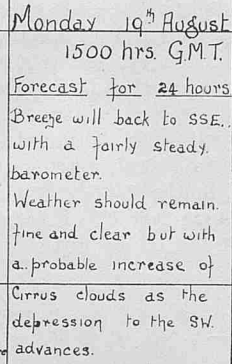 Monday 19th August
1500 hrs. G.M.T.
Forecast for 24 hours
Breeze will back to SSE..
with a fairly steady.
barometer.
Weather should remain.
fine and clear but with
a..probable increase of
Cirrus clouds as the
depression to the SW.
advances.